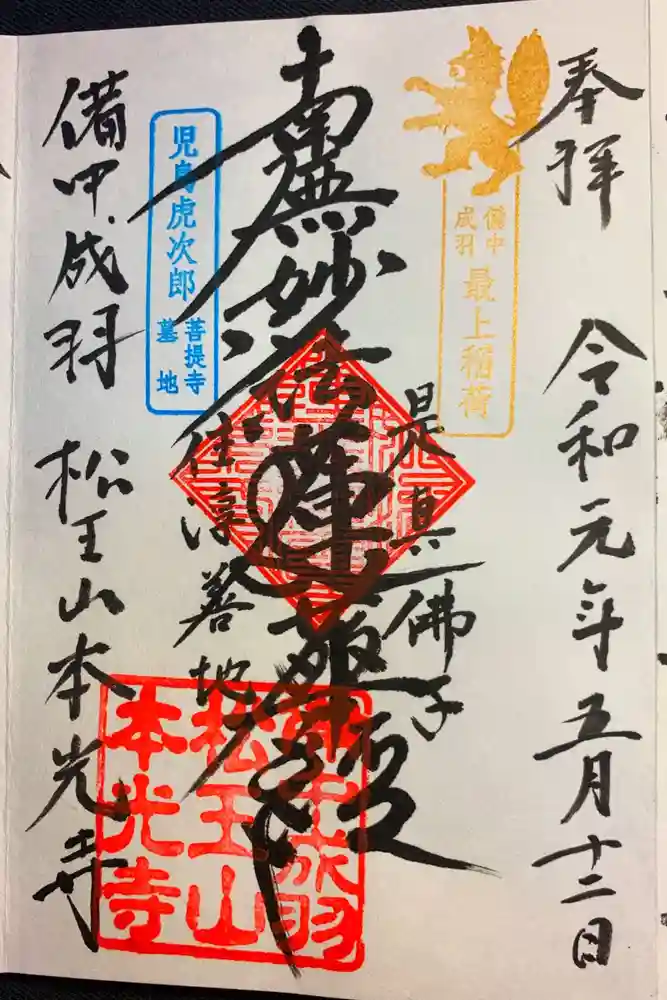 奉拝
令和元年五月十二日
備中
成羽
最上稲荷
是真佛子
南無妙法蓮華経
住淳善地
児島虎次郎
菩提寺
墓地
備中成羽 松王山本光寺
備中成羽
松王山
本光寺